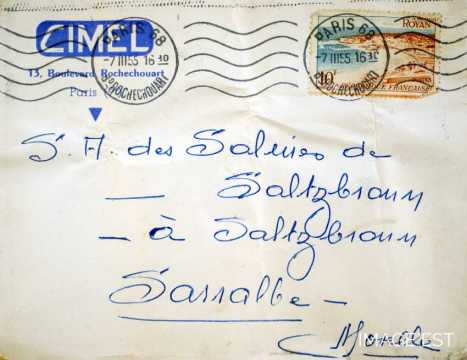 CIMEL
13, Boulevard Rochechouart
Paris
PARIS 68
-7 III55 16 30
Bd ROCHECHOUART
PARIS 68
-7 III55 16 30
Bd ROCHECHOUART
ROYAN
10F
FRANÇAISE
S. A. des Salines de
— Saltzbronn
— à Saltzbronn
Sarralbe —
Moselle
IMAGBEST